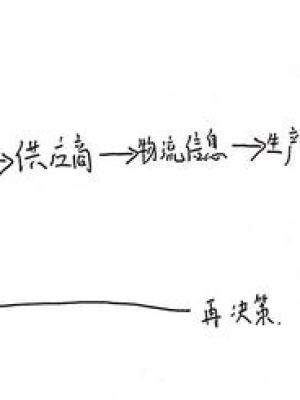 →供应商→物流信息→生产
再决策.